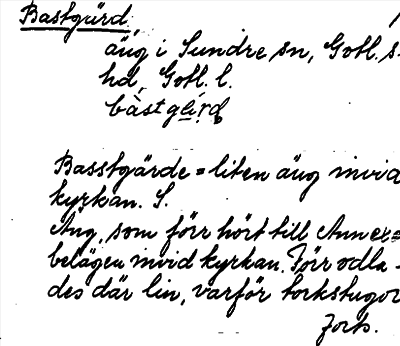 Bastgärd
äng i Sundre sn, Gotl. s.
hd, Gotl. l.
Basstgärde = liten äng invid
kyrkan. S.
Äng, som förr hört till Annex=
belägen invid kyrkan. Förr odla-
des där lin, varför torkstugor